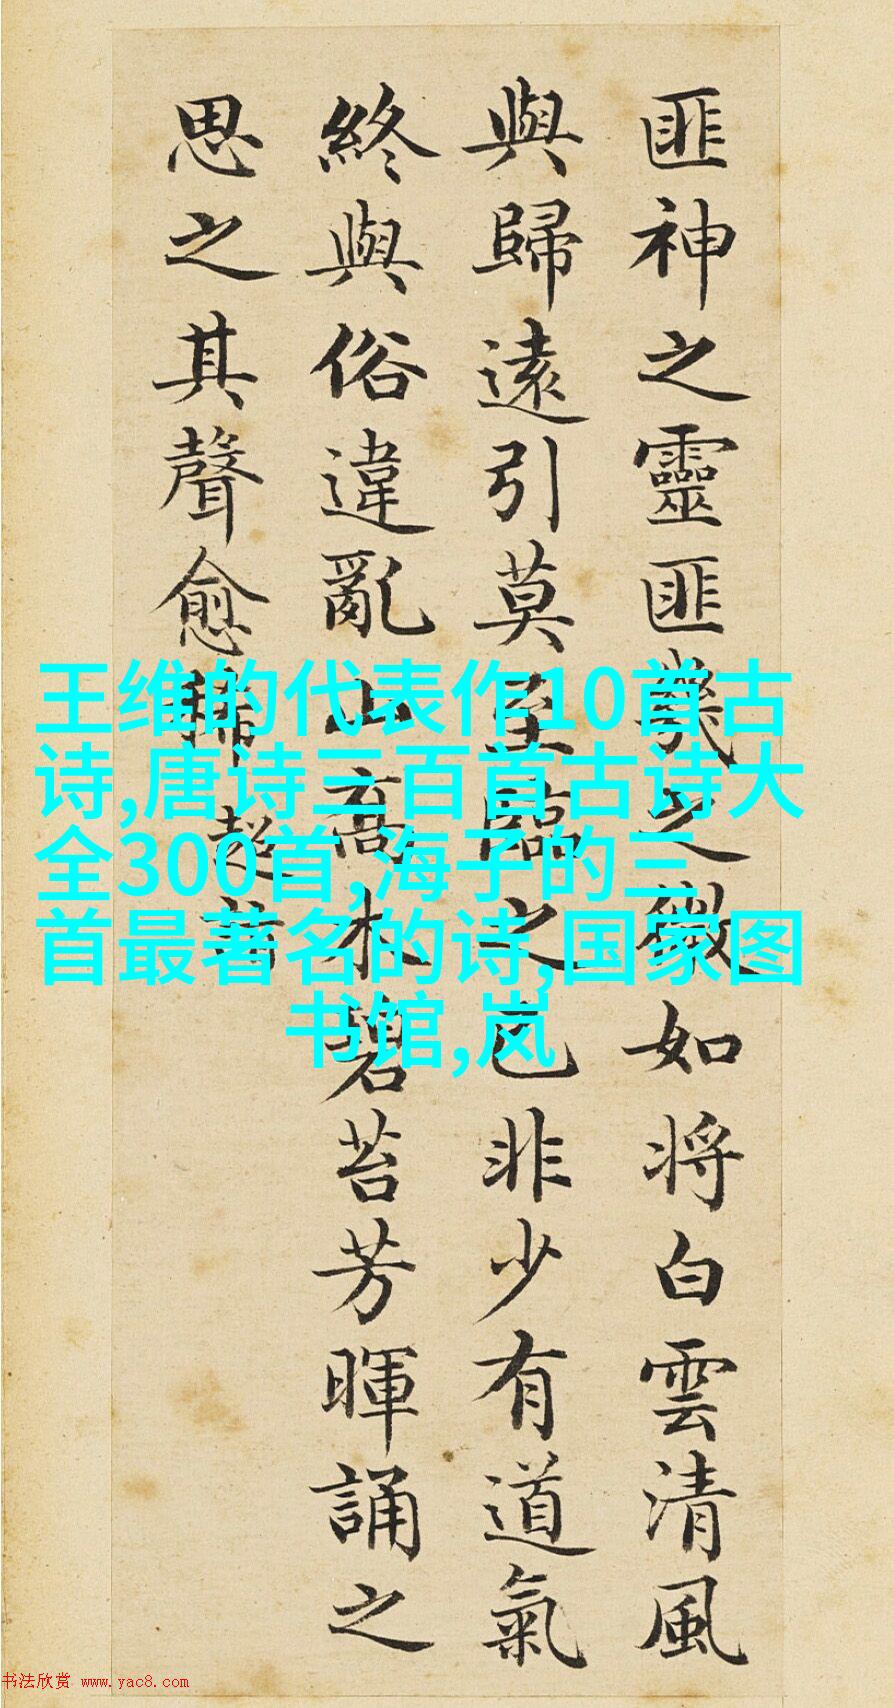 匪神之靈匪幾之微如將白雲清風
與歸遠引莫至臨之已非少有道氣
終與俗違亂山高木碧苔芳暉誦之
思之其聲愈稀
王维的代表作10首古
诗,唐诗三百首古诗大
全300首,海子的三
首最著名的诗,国家图
书馆,岚
书法欣赏 www.yac8.com